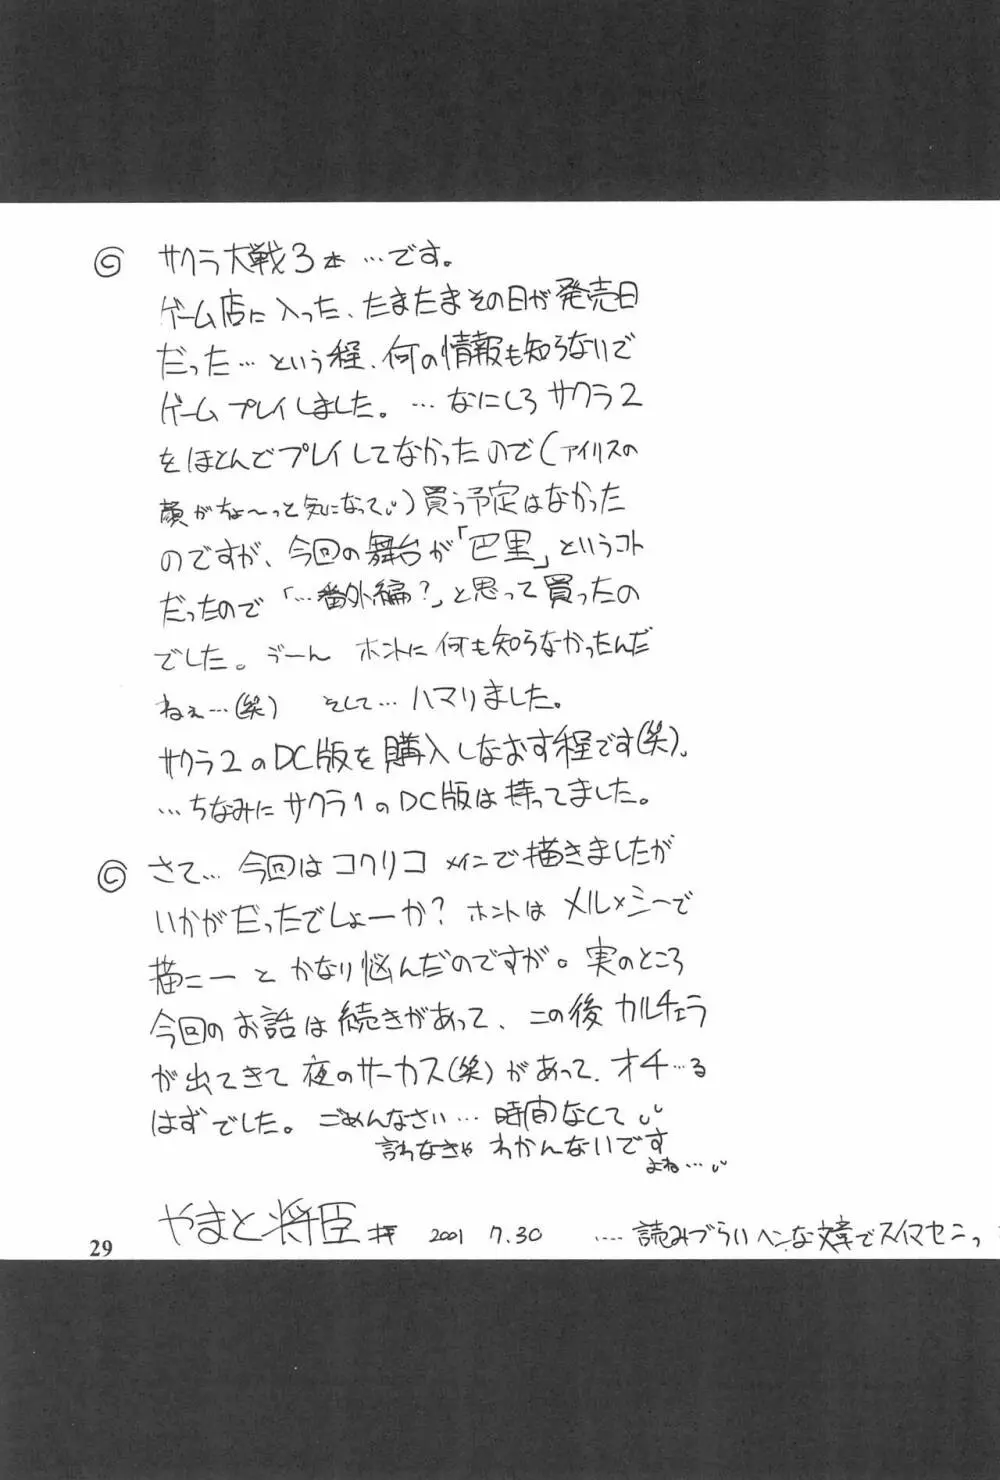 ◎ サクラ大戦3本…です。
ゲーム店に入った、たまたまその日が発売日
だった…という程、何の情報も知らないで
ゲームプレイしました。…なにしろサクラ2
をほとんどプレイしてなかったので(アイリスの
顔がちょ〜っと気になって)買う予定はなかった
のですが、今回の舞台が「巴里」というコト
だったので「…番外編?」と思って買ったの
でした。うーん ホントに何も知らなかったんだ
ねぇ…(笑) そして…ハマりました。
サクラ2のDC版を購入しなおす程です(笑)。
…ちなみにサクラ1のDC版は持ってました。
◎ さて…今回はコクリコメインで描きましたが
いかがだったでしょーか? ホントはメル×シーで
描こーとかなり悩んだのですが。実のところ
今回のお話は続きがあって、この後カルチェラ
が出てきて夜のサーカス(笑)があって、オチ…る
はずでした。ごめんなさい…時間なくて
言わなきゃわかんないです
よね…
やまと将臣 拝 2001 7.30 ....読みづらいヘンな文章でスイマセンっ
29